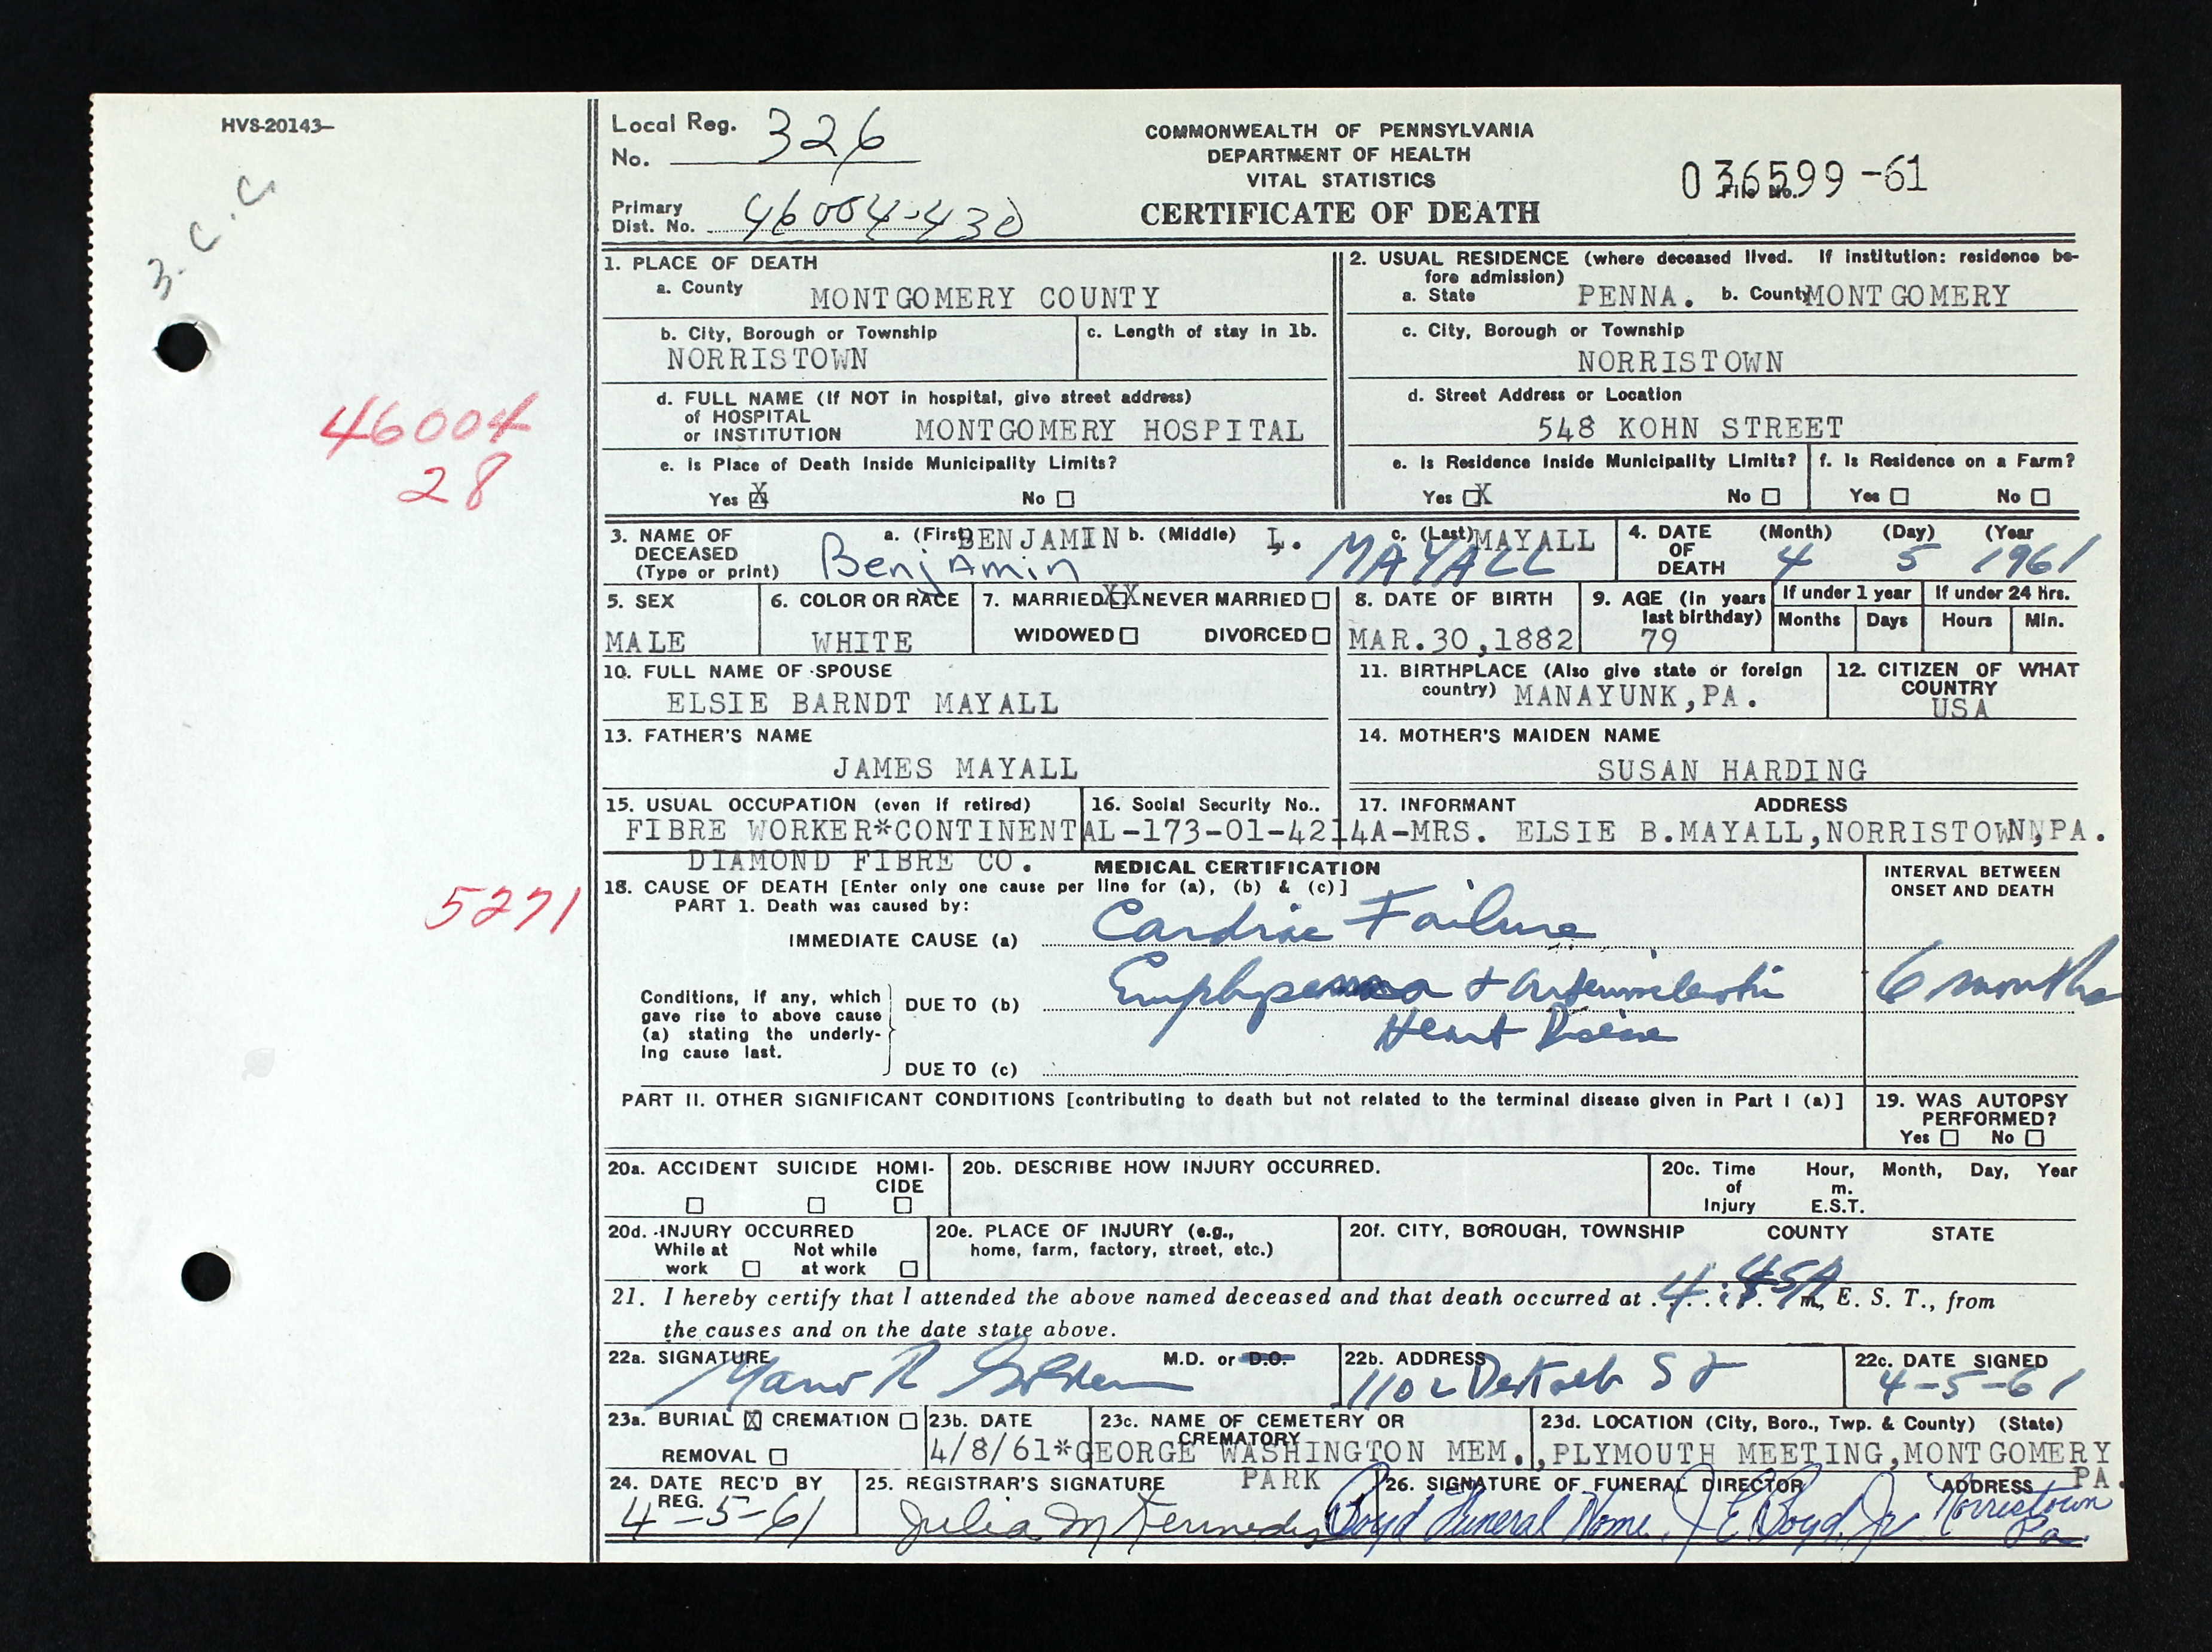 HVS-20143-
3-C.C.
46004
28
5271
Local Reg. No. 326
Primary Dist. No. 46004-430
COMMONWEALTH OF PENNSYLVANIA
DEPARTMENT OF HEALTH
VITAL STATISTICS
CERTIFICATE OF DEATH
File No. 036599-61
1. PLACE OF DEATH
a. County MONTGOMERY COUNTY
b. City, Borough or Township
NORRISTOWN
c. Length of stay in 1b.
d. FULL NAME (If NOT in hospital, give street address)
of HOSPITAL
or INSTITUTION MONTGOMERY HOSPITAL
e. Is Place of Death Inside Municipality Limits?
Yes X No
2. USUAL RESIDENCE (where deceased lived. If institution: residence be-
fore admission)
a. State PENNA. b. County MONTGOMERY
c. City, Borough or Township
NORRISTOWN
d. Street Address or Location
548 KOHN STREET
e. Is Residence Inside Municipality Limits? f. Is Residence on a Farm?
Yes X No Yes No
3. NAME OF DECEASED (Type or print)
a. (First) BENJAMIN b. (Middle) L. c. (Last) MAYALL
Benjamin MAYALL
4. DATE OF DEATH (Month) (Day) (Year
4 5 1961
5. SEX
MALE
6. COLOR OR RACE
WHITE
7. MARRIED XX NEVER MARRIED
WIDOWED DIVORCED
8. DATE OF BIRTH
MAR.30,1882
9. AGE (in years last birthday)
79
If under 1 year If under 24 Hrs.
Months Days Hours Min.
10. FULL NAME OF SPOUSE
ELSIE BARNDT MAYALL
11. BIRTHPLACE (Also give state or foreign
country) MANAYUNK,PA.
12. CITIZEN OF WHAT COUNTRY
USA
13. FATHER'S NAME
JAMES MAYALL
14. MOTHER'S MAIDEN NAME
SUSAN HARDING
15. USUAL OCCUPATION (even if retired) 16. Social Security No.. 17. INFORMANT ADDRESS
FIBRE WORKER*CONTINENTAL-173-01-4214A-MRS. ELSIE B.MAYALL,NORRISTOWN,PA.
DIAMOND FIBRE CO.
MEDICAL CERTIFICATION
18. CAUSE OF DEATH [Enter only one cause per line for (a), (b) & (c)]
PART 1. Death was caused by:
IMMEDIATE CAUSE (a) Cardiac Failure
INTERVAL BETWEEN
ONSET AND DEATH
Conditions, if any, which
gave rise to above cause
(a) stating the underly-
ing cause last.
DUE TO (b) Emphysema + Arteriosclerotic
Heart Disease
6 months
DUE TO (c)
PART II. OTHER SIGNIFICANT CONDITIONS [contributing to death but not related to the terminal disease given in Part I (a)]
19. WAS AUTOPSY
PERFORMED?
Yes No
20a. ACCIDENT SUICIDE HOMI-
CIDE
20b. DESCRIBE HOW INJURY OCCURRED.
20c. Time of Injury Hour, Month, Day, Year
m.
E.S.T.
20d. INJURY OCCURRED
While at work Not while at work
20e. PLACE OF INJURY (e.g.,
home, farm, factory, street, etc.)
20f. CITY, BOROUGH, TOWNSHIP COUNTY STATE
21. I hereby certify that I attended the above named deceased and that death occurred at 4:45A m, E. S. T., from
the causes and on the date state above.
22a. SIGNATURE M.D. or D.O.
22b. ADDRESS
1102 DeKalb St
22c. DATE SIGNED
4-5-61
23a. BURIAL X CREMATION
REMOVAL
23b. DATE
4/8/61*
23c. NAME OF CEMETERY OR
CREMATORY
GEORGE WASHINGTON MEM.
PARK
23d. LOCATION (City, Boro., Twp. & County) (State)
,PLYMOUTH MEETING,MONTGOMERY
PA.
24. DATE REC'D BY
REG.
4-5-61
25. REGISTRAR'S SIGNATURE
Julia M Kennedy
26. SIGNATURE OF FUNERAL DIRECTOR ADDRESS
Boyd Funeral Home J E Boyd Jr Norristown
Pa.